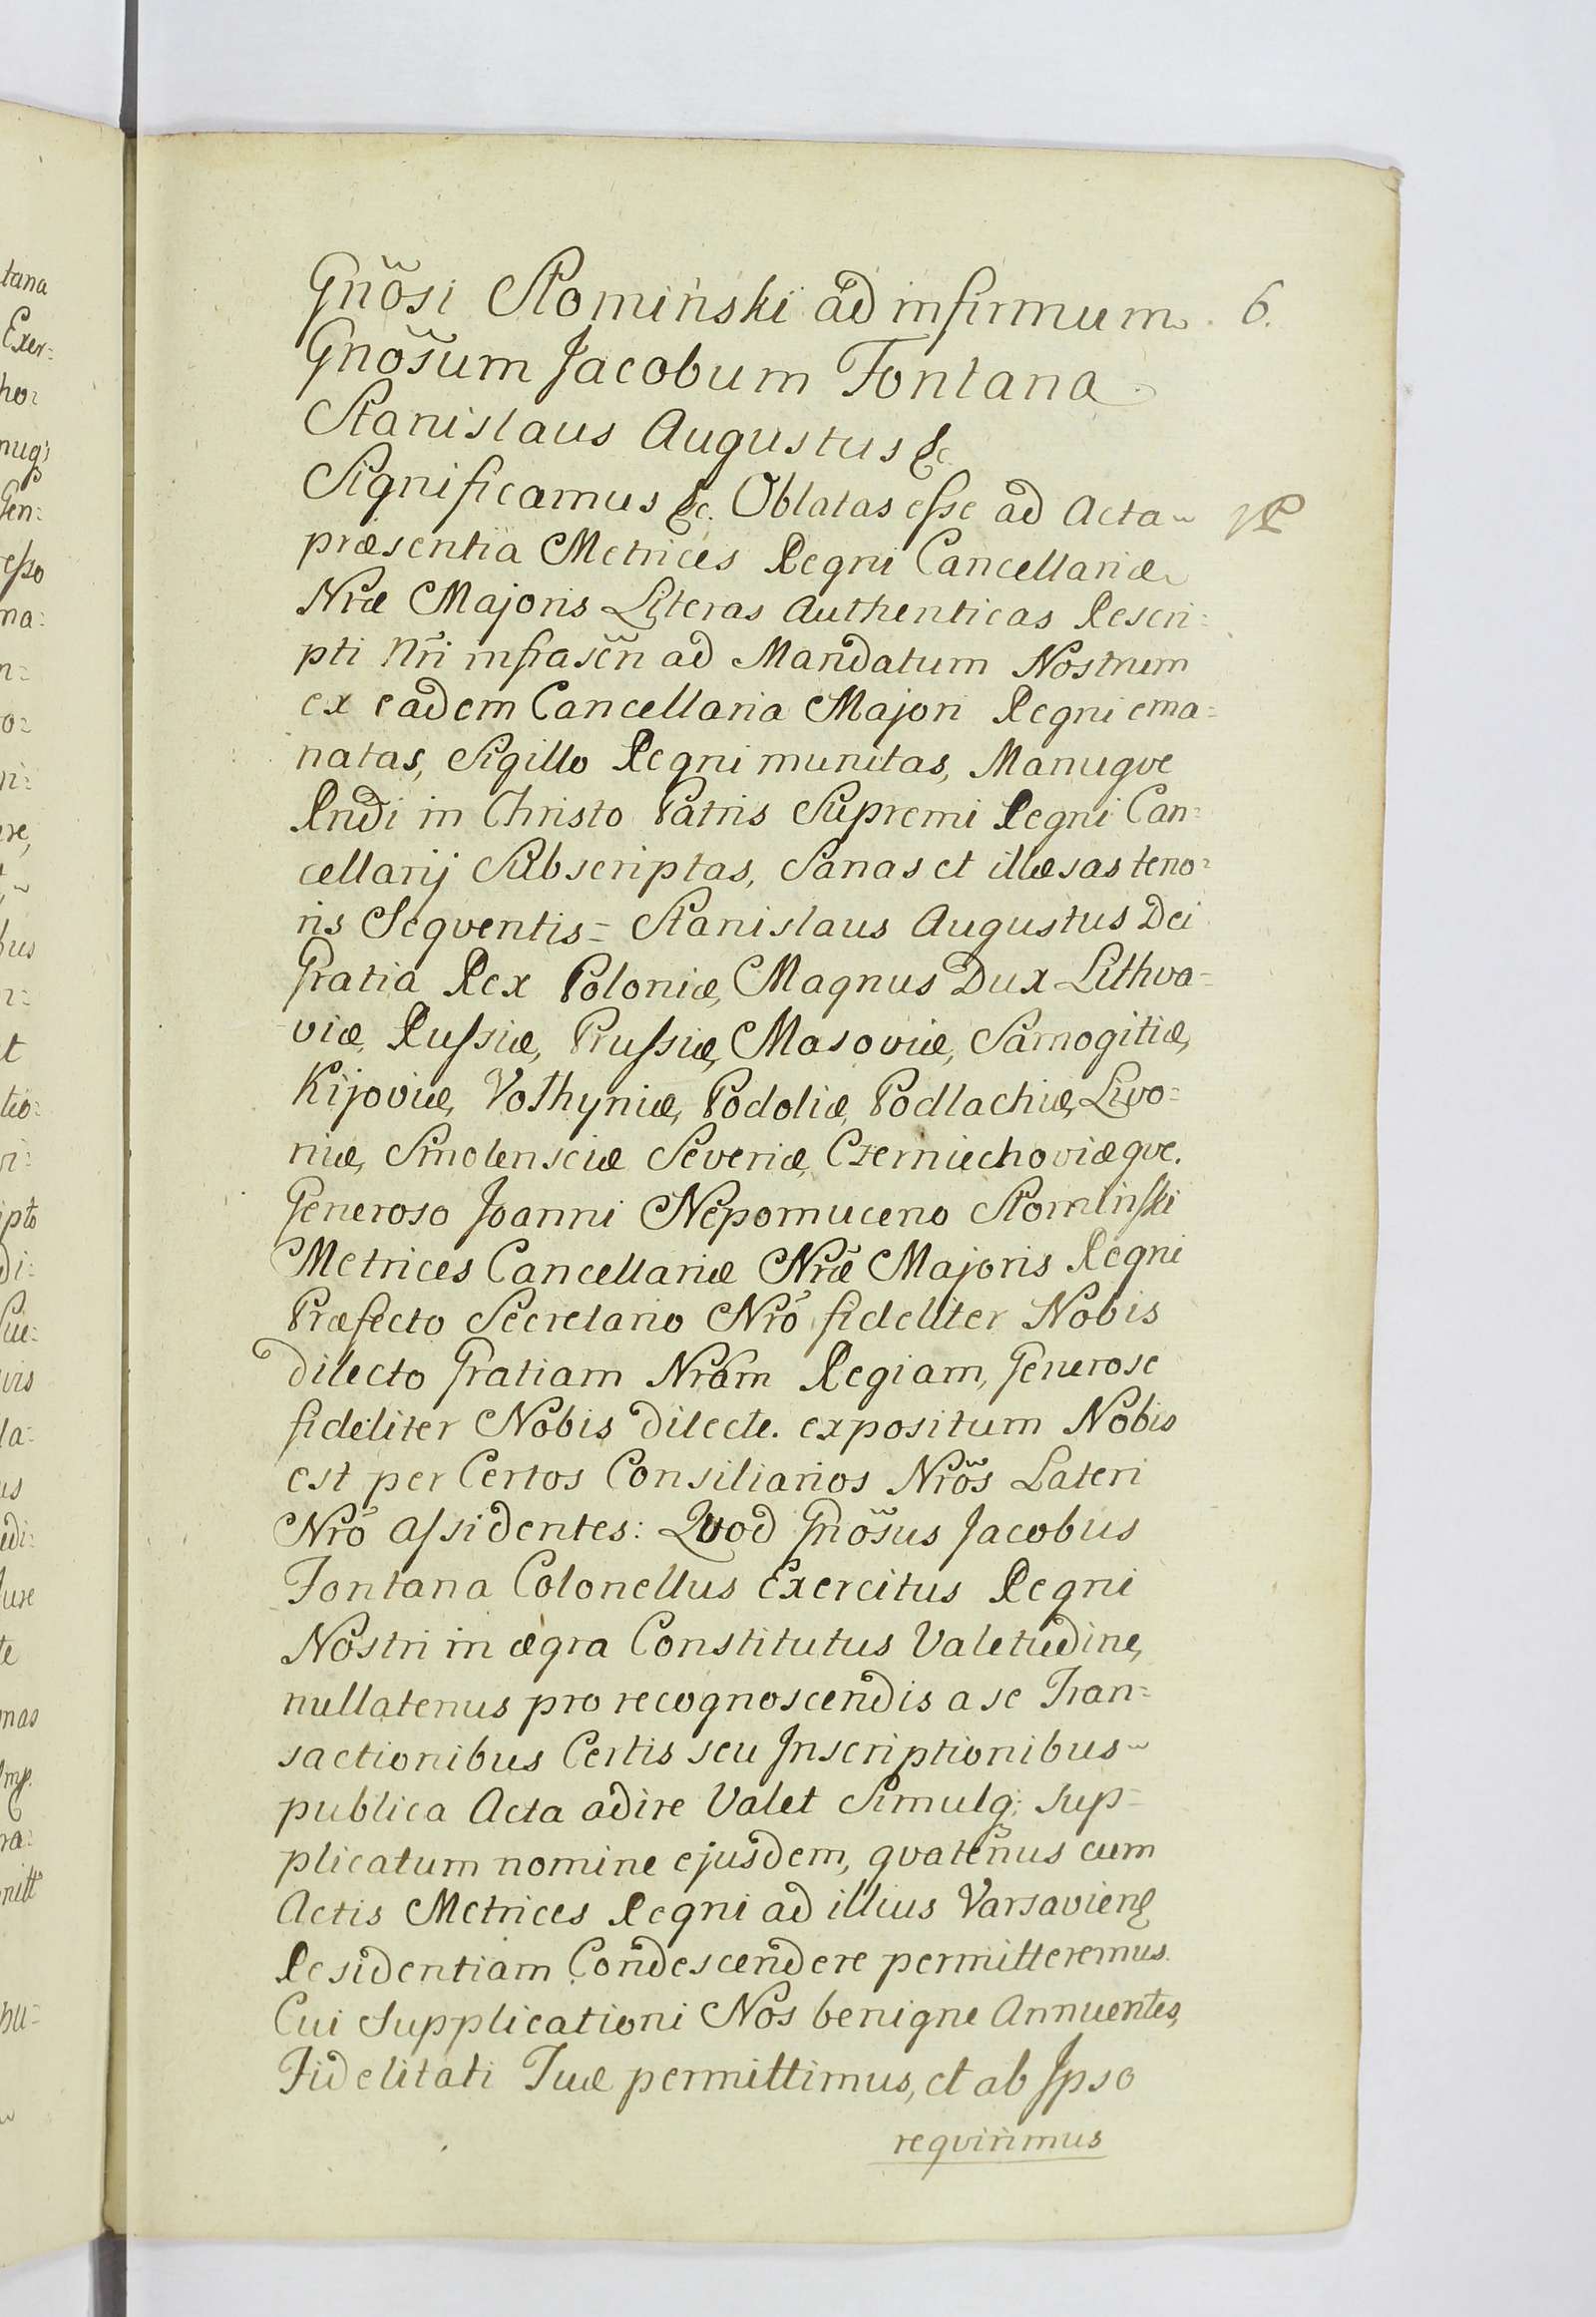 Gnõsi Słomiński ad infirmum 6.
Gnõsum Jacobum Fontana
Stanislaus Augustus &c
Significamus &c. Oblatas eſse ad Acta
præsentia Metrices Regni Cancellariæ
Nræ Majoris Literas Authenticas Rescri=
pti Nri infrascñ ad Mandatum Nostrum
ex eadem Cancellaria Majori Regni ema=
natas, Sigillo Regni munitas, Manuqve
Rndi in Christo Patris Supremi Regni Can=
cellarij Subscriptas, Sanas et illæsas teno=
ris Seqventis= Stanislaus Augustus Dei
Gratia Rex Poloniæ, Magnus Dux Lithva=
viæ, Ruſsiæ, Pruſsiæ, Masoviæ, Samogitiæ,
Kijoviæ, Volhyniæ, Podoliæ, Podlachiæ, Livo=
niæ, Smolensciæ Severiæ, Czerniechoviæqve.
Generoso Joanni Nepomuceno Słominſki
Metrices Cancellariæ Nræ Majoris Regni
Præfecto Secretario Nrõ fideliter Nobis
dilecto Gratiam Nram Regiam, Generose
fideliter Nobis dilecte. expositum Nobis
est per Certos Consiliarios Nrõs Lateri
Nrõ aſsidentes: Qvod Gnõsus Jacobus
Fontana Colonellus Exercitus Regni
Nostri in ægra Constitutus Valetudine,
nullatenus pro recognoscendis a se Tran=
sactionibus Certis seu Inscriptionibus
publica Acta adire Valet Simulq; sup=
plicatum nomine ejusdem, qvatenus cum
Actis Metrices Regni ad illius Varsavieñ
Residentiam Condescendere permitteremus.
Cui Supplicationi Nos benigne Annuentes,
Fidelitati Tuæ permittimus, et ab Ipso
reqvirimus